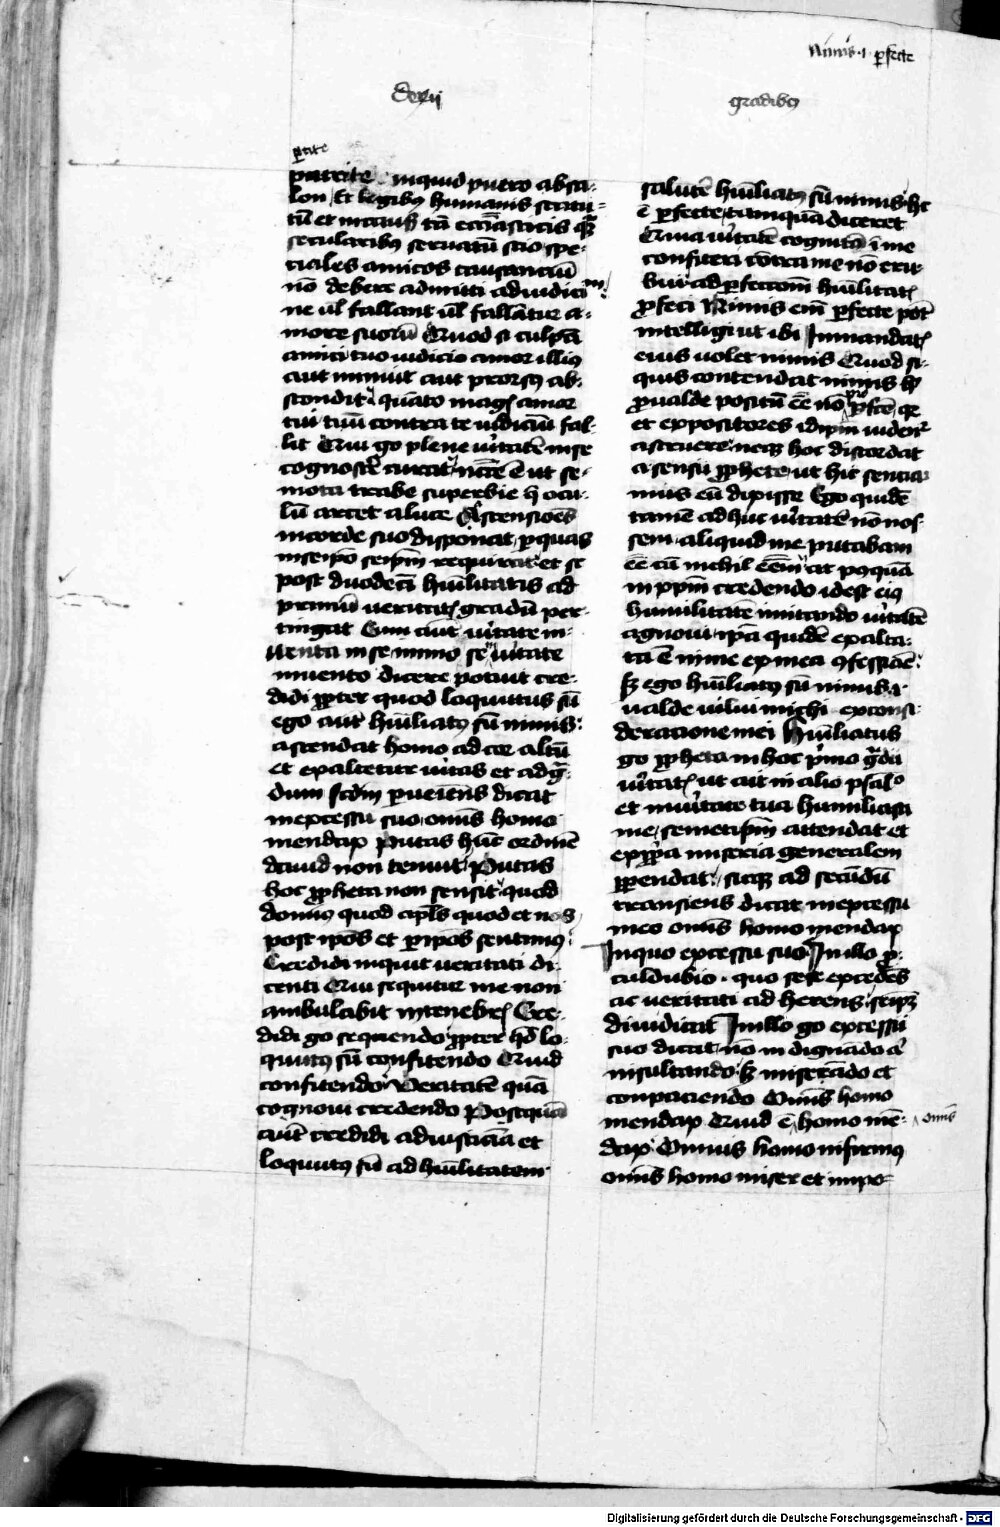 Nimis .i. perfecte
De xii
gradibus
parcite
parcite inquid puero absa-
lon Et legibus humanis statu-
tum et in causis tam ecclesiasticis quam
secularibus seruatum scio spe-
ciales amicos causancium
non debere admitti ad iudicium
ne uel fallant uel fallantur a-
more suorum Quod si culpam
amici tuo iudicio amor illius
aut minuit aut prorsus ab-
scondit quanto magis amor
tui tuum contra te iudicium fal-
lit Qui go plene veritatem in se
cognoscere curat necesse est ut se-
mota trabe superbie que ocu-
lum arcet a luce Ascensiones
in corde suo disponat per quas
in seipso seipsum requirat et sic
post duodecimum humilitatis ad
primum veritatis gradum per-
tingat Cum autem veritate in-
uenta in se immo se in veritate
inuento dicere potuit cre-
didi propter quod loquutus sum
ego autem humiliatus sum nimis
ascendat homo ad cor altum
et exaltetur veritas et ad gra-
dum secundum perueniens dicat
in excessu suo omnis homo
mendax Putas hunc ordinem
dauid non tenuit Putas
hoc propheta non sensit quod
dominus quod apostolus quod et nos
post ipsos et per ipsos sentimus
Credidi inquit ueritati di-
centi Qui sequitur me non
ambulabit in tenebris Cre-
didi go sequendo propter quod lo-
quutus sum confitendo Quid
confitendo Veritatem quam
cognoui credendo Postquam
autem credidi ad iusticiam et
loquutus sum ad humilitatem
salutem humiliatus sum nimis hoc
est perfecte tamquam diceret
Quia veritatem cognitam in me
confiteri contra me non eru-
bui ad perfectionem humilitatis
profeci Nimis enim perfecte potest
intelligi ut ibi In mandatis
eius uolet nimis Quod si-
quis contendat nimis hic
pro ualde positum esse non pro perfecte quia
et expositores idipsum uidentur
astruere neque hoc discordat
a sensu prophete ut hic sentia-
mus eum dixisse Ego quidem
tamen adhuc veritatem non nos-
sem aliquid me putabam
esse cum nichil essem at postquam
in xpm credendo idest eius
humilitatem imitando veritatem
agnoui ipsa quidem exalta-
ta est in me ex mea confessione
sed ego humiliatus sum nimis .i.
ualde uilui michi ex consi-
deracione mei Humiliatus
go propheta in hoc primo gradu
veritatis ut ait in alio psalmo
et in veritate tua humiliasti
me semetipsum attendat et
ex propria miseria generalem
perpendat sicque ad secundum
transiens dicat in excessu
meo omnis homo mendax
In quo excessu suo In illo pro-
culdubio quo sese excedens
ac ueritati adherens seipsum
diiudicat In illo go excessu
suo dicat non indignando aut
insultando sed miserando et
conpaciendo Omnis homo
mendax Quid est homo men-
omnis
dax Omnis homo infirmus
omnis homo miser et impo-
Digitalisierung gefördert durch die Deutsche Forschungsgemeinschaft - DFG